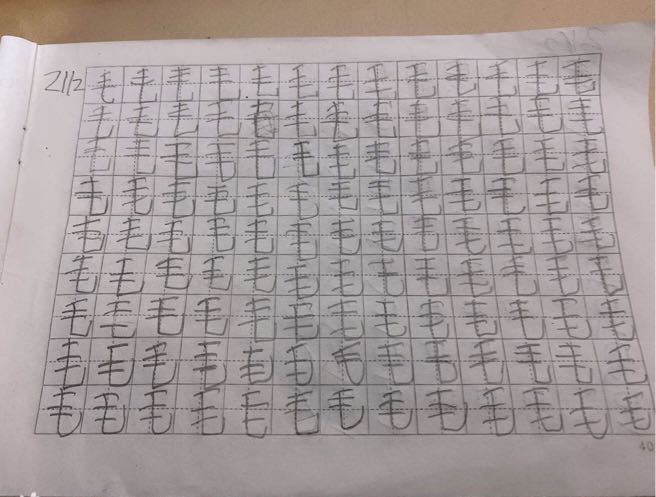 21/2 毛 毛 毛 毛 毛 毛 毛 毛 毛 毛 毛 毛 毛
毛 毛 毛 毛 毛 毛 毛 毛 毛 毛 毛 毛 毛
毛 毛 毛 毛 毛 毛 毛 毛 毛 毛 毛 毛 毛
毛 毛 毛 毛 毛 毛 毛 毛 毛 毛 毛 毛 毛
毛 毛 毛 毛 毛 毛 毛 毛 毛 毛 毛 毛 毛
毛 毛 毛 毛 毛 毛 毛 毛 毛 毛 毛 毛 毛
毛 毛 毛 毛 毛 毛 毛 毛 毛 毛 毛 毛 毛
毛 毛 毛 毛 毛 毛 毛 毛 毛 毛 毛 毛 毛
毛 毛 毛 毛 毛 毛 毛 毛 毛 毛 毛 毛 毛
40